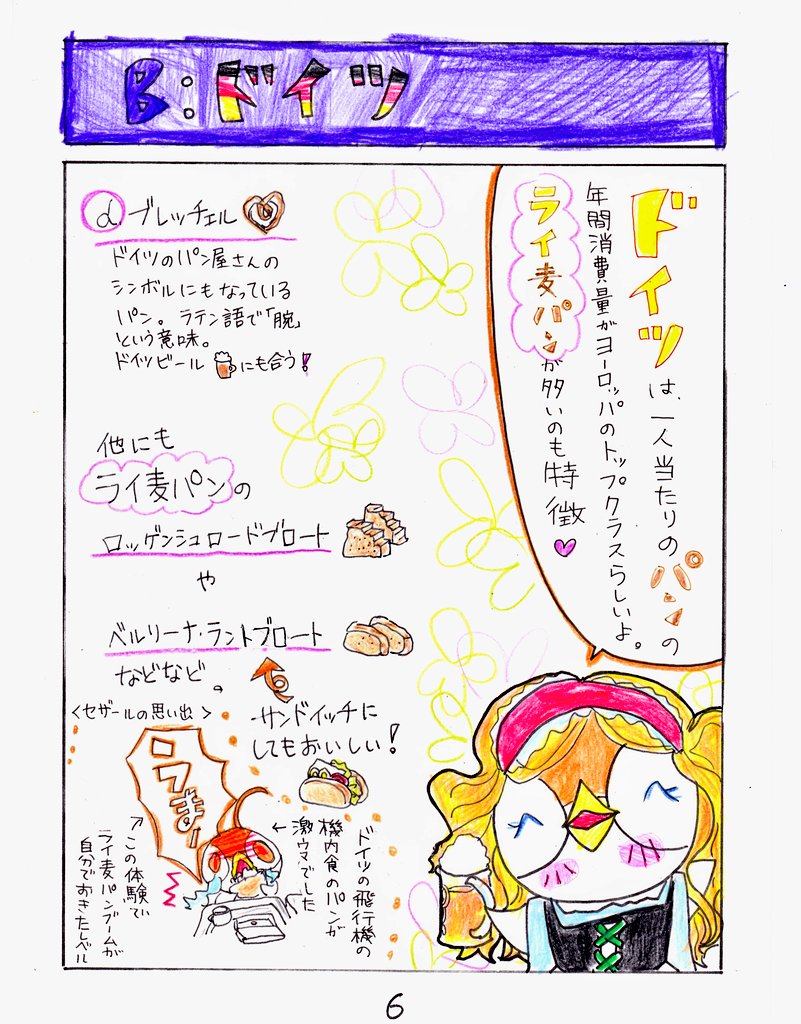 B:ドイツ
ドイツは、一人当たりのパンの
年間消費量がヨーロッパのトップクラスらしいよ。
ライ麦パンが多いのも特徴♥
d.ブレッチェル
ドイツのパン屋さんの
シンボルにもなっている
パン。ラテン語で「腕」
という意味。
ドイツビールにも合う!
他にも
ライ麦パンの
ロッゲンシュロードブロート
や
ベルリーナ・ラントブロート
などなど。
サンドイッチに
してもおいしい!
<セザールの思い出>
ドイツの飛行機の
機内食のパンが
激ウマでした
↑この体験で
ライ麦パンブームが
自分でおきたレベル
6